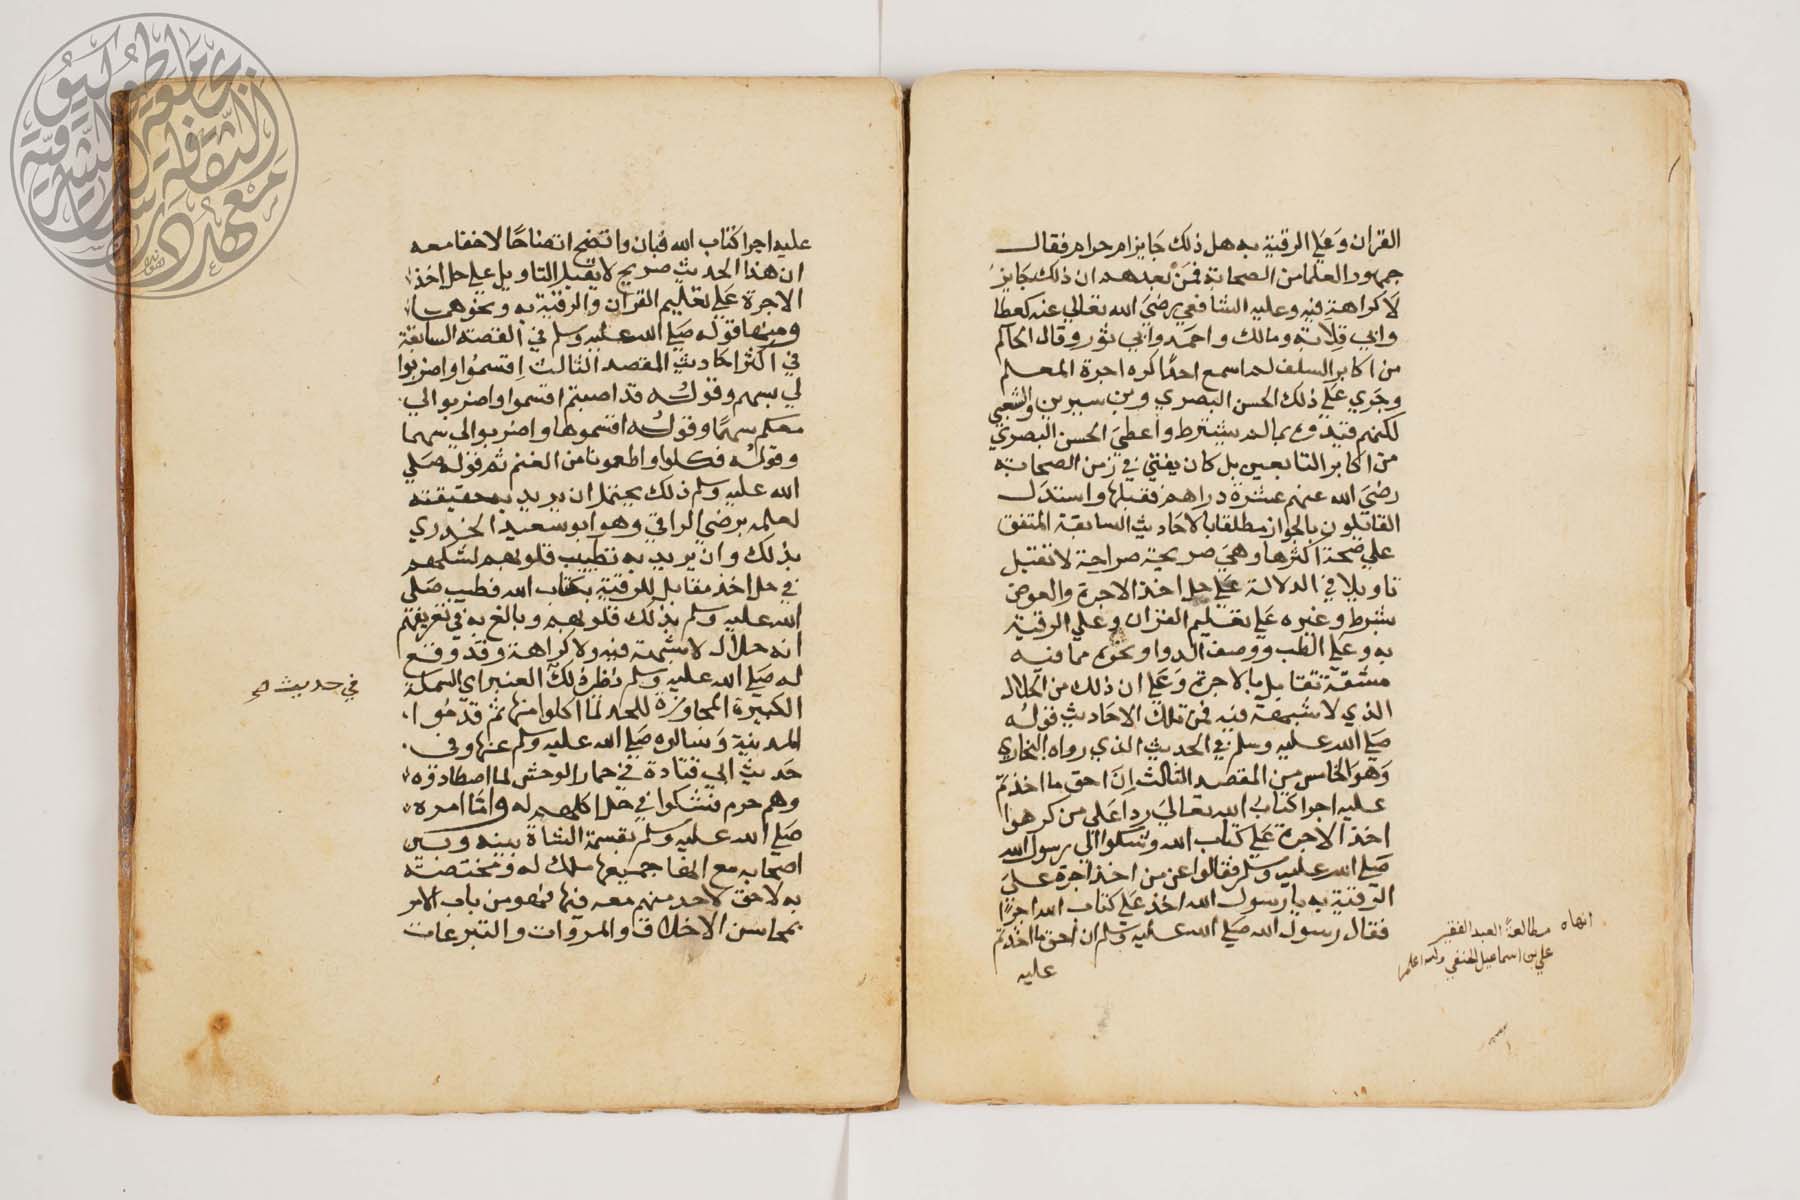 القران وعلي الرقية به هل ذلك جايز ام حرام فقال
جمهور العلما من الصحابة فمن بعدهم ان ذلك جايز
لا كراهة فيه وعليه الشافعي رضي الله تعالي عنه كعطا
وابي قلابة ومالك واحمد وابي ثور وقال الحاكم
من اكابر السلف لم اسمع احدا كره اجرة المعلم
وجري علي ذلك الحسن البصري وبن سيرين والشعبي
لكنهم قيدوه بما لم يشترط واعطي الحسن البصري
من اكابر التابعين بل كان يفتي في زمن الصحابة
رضي الله عنهم عشرة دراهم فقبلها واستدل
القايلون بالجواز مطلقا بالاحاديث السابقة المتفق
علي صحة اكثرها وهي صريحة صراحة لا تقبل
تاويلا في الدلالة علي حل اخذ الاجرة والعوض
بشرط وغيره علي تعليم القران وعلي الرقية
به وعلي الطب ووصف الدوا ونحوهم مما فيه
مشقة تقابل بالاجرة وعلي ان ذلك من الحلال
الذي لا شبهة فيه فمن تلك الاحاديث قوله
صلي الله عليه وسلم في الحديث الذي رواه البخاري
وهو الخامس من المقصد الثالث ان احق ما اخذتم
عليه اجرا كتاب الله تعالي ردا علي من كرهوا
اخذ الاجرة علي كتاب الله وشكوا الي رسول الله
صلي الله عليه وسلم فقالوا عن من اخذ اجرة علي
الرقية به يا رسول الله اخذ علي كتاب الله اجرا
فقال رسول الله صلي الله عليه وسلم ان احق ما اخذتم
عليه
انهاه مطالعة العبد الفقير
علي بن اسماعيل الحنفي
عليه اجرا كتاب الله فبان واتضح اتضاحا لا خفا معه
ان هذا الحديث صريح لا يقبل التاويل علي حل اخذ
الاجرة علي تعليم القران والرقية به ونحوهما
ومنها قوله صلي الله عليه وسلم في القصة السابقة
في اكثر احاديث المقصد الثالث اقسموا واضربوا
لي بسهم وقوله قد اصبتم اقسموا واضربوا لي
معكم سهما وقوله اقسموها واضربوا لي سهما
وقوله فكلوا واطعمونا من الغنم ثم قوله صلي
الله عليه وسلم ذلك يحتمل ان يريد به حقيقته
لعلمه برضي الراقي وهو ابو سعيد الخدري
بذلك وان يريد به تطييب قلوبهم لشكهم
في حل اخذ مقابل للرقية بكتاب الله فطيب صلي
الله عليه وسلم بذلك قلوبهم وبالغ به في تعريفهم
انه حلال لا شبهة فيه ولا كراهة وقد وقع
له صلي الله عليه وسلم نظير ذلك العنبر اي السمكة
الكبيرة المجاوزة للحد لما اكلوا منها ثم قدموا
المدينة وسالوه صلي الله عليه وسلم عنها وفي
حديث ابي قتادة في حمار الوحش لما اصطادوه
وهم حرم فشكوا في حل اكلهم له واما امره
صلي الله عليه وسلم بقسمة الشاة بينه وبين
اصحابه مع انها جميعها ملك له ومختصة
به لا حق لاحد منهم معه فيها فهو من باب الامر
بمحاسن الاخلاق والمروات والتبرعات
في حديث
معهد الثقافة والدراسات الشرقية
جامعة طوكيو